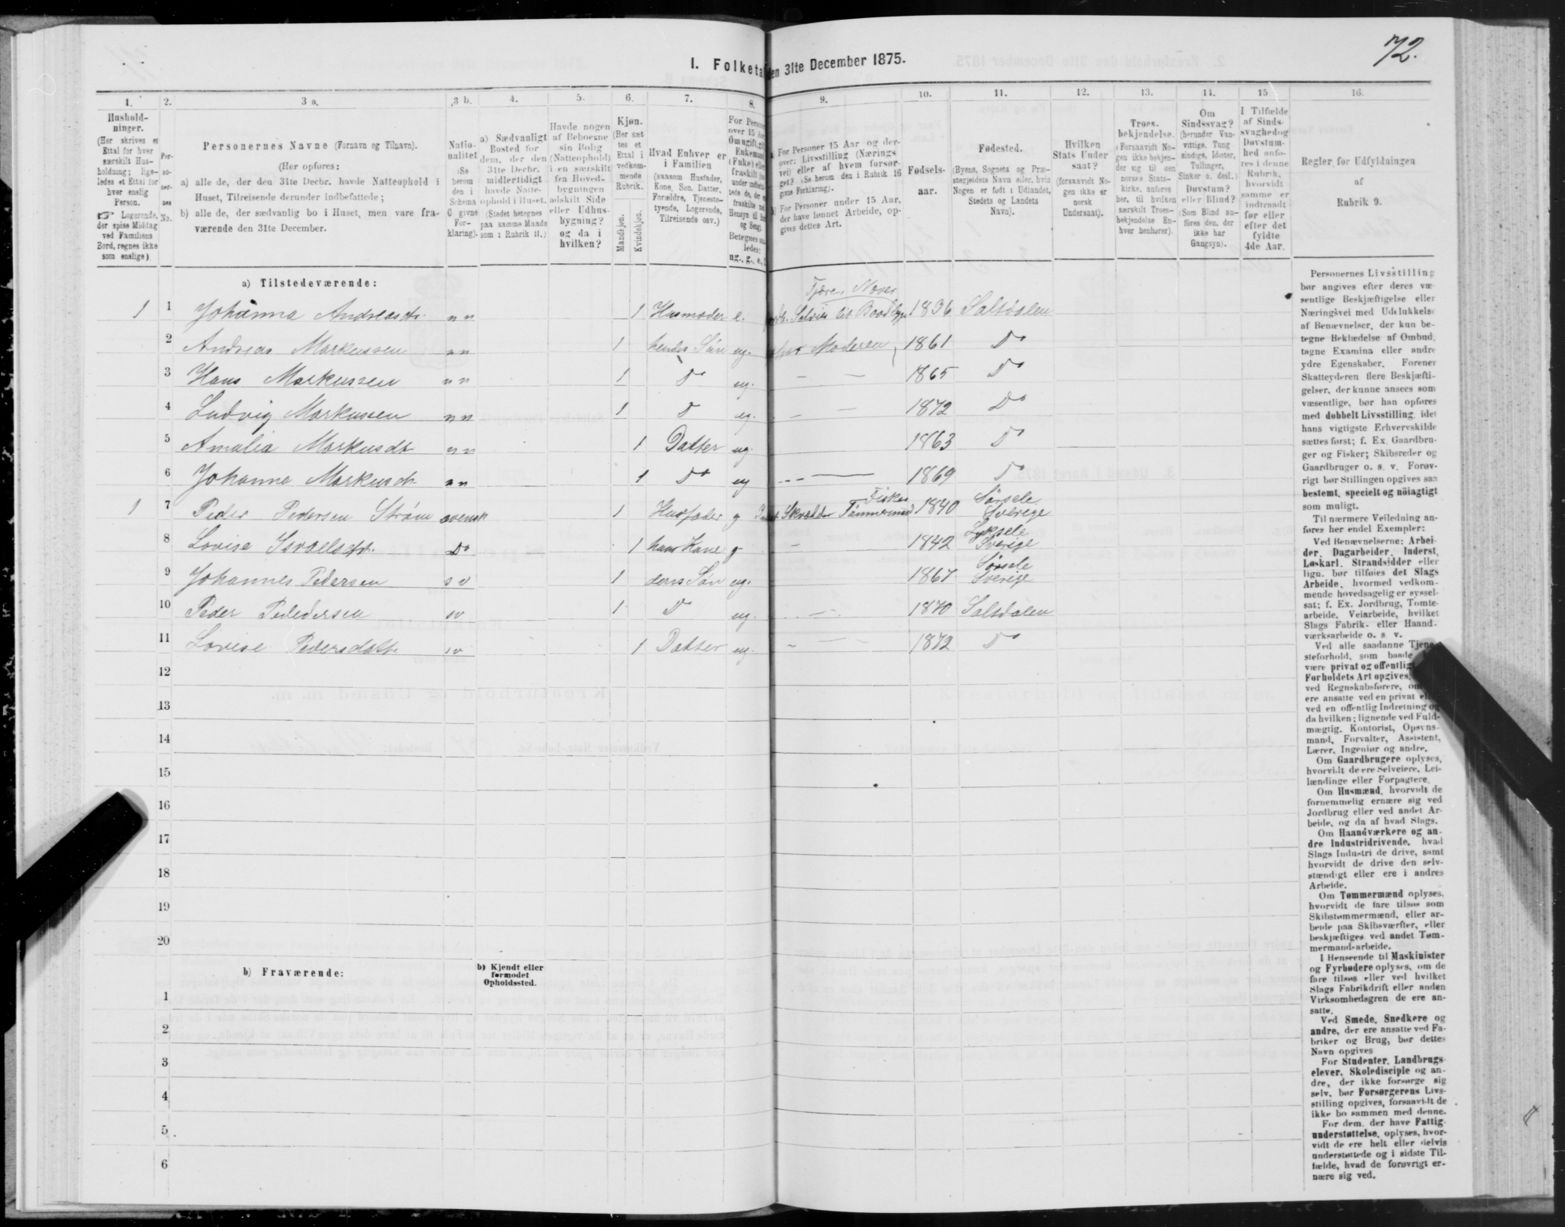 72.
I. Folketa
en 31te December 1875.
1.
Hushold-
ninger.
(Her skrives et
Ettal for hver
særskilt Hus-
holdning; lige-
ledes et Ettal for
hver enslig
Person.
Logerende,
der spise Middag
ved Familiens
Bord, regnes ikke
som enslige)
2.
Per-
so-
ner-
nes
No.
3 a.
Personernes Navne (Fornavn og Tilnavn).
(Her opføres:
a) alle de, der den 31te Decbr. havde Natteophold i
Huset, Tilreisende derunder indbefattede;
b) alle de, der sædvanlig bo i Huset, men vare fra-
værende den 31te December.
3 b.
Natio-
nalitet
(Se
herom
den i
Schema
O givne
For-
klaring).
4.
a) Sædvanligt
Bosted for
dem, der den
31te Decbr.
midlertidigt
havde Natte-
ophold i Huset.
(Stedet betegnes
paa samme Maade
som i Rubrik 11.)
5.
Havde nogen
af Beboerne
sin Bolig
(Natteophold)
i en særskilt
fra Hoved-
bygningen
adskilt Side
eller Udhus-
bygning?
og da i
hvilken?
6.
Kjøn.
(Her sæt
tes et
Ettal i
vedkom-
mende
Rubrik.
Mandkjøn.
Kvindekjøn.
7.
Hvad Enhver er
i Familien
(saasom Husfader,
Kone, Søn, Datter,
Forældre, Tjeneste-
tyende, Logerende,
Tilreisende osv.)
8.
For Person
over 15
9.
For Personer 15 Aar og der-
over: Livsstilling (Nærings
vei) eller af hvem forsør-
get? (Se herom den i Rubrik 16
givne Forklaring).
For Personer under 15 Aar,
der have lønnet Arbeide, op-
gives dettes Art.
10.
Fødsels-
aar.
11.
Fødested.
(Byens, Sognets og Præ-
stegjeldets Navn eller, hvis
Nogen er født i Udlandet,
Stedets og Landets
Navn).
12.
Hvilken
Stats Under
saat?
(forsaavidt No-
gen ikke er
norsk
Undersaat).
13.
Troes-
bekjendelse.
(Forsaavidt No-
gen ikke bekjen-
der sig til den
norske Stats-
kirke, anføres
her, til hvilken
særskilt Troes-
bekjendelse En-
hver henhører).
14.
Om
Sindssvag?
(herunder Van-
vittige, Tung
sindige, Idioter,
Tullinger,
Sinker o. desl.)
Døvstum?
eller Blind?
(Som Blind an-
føres den, der
ikke har
Gangsyn).
15
I Tilfælde
af Sinds-
svaghed og
Døvstum-
hed anfø-
res i denne
Rubrik,
hvorvidt
samme er
indtraadt
før eller
efter det
fyldte
4de Aar.
16.
Regler for Udfyldningen
af
Rubrik 9.
a) Tilstedeværende:
1 1 Johanna Andreasdt. n n 1 Husmoder e. 1836 Saltdalen
2 Andreas Markussen n n 1 hendes Søn ug. Moderen 1861 Do
3 Hans Markussen n n 1 Do ug. — — 1865 Do
4 Ludvig Markussen n n 1 D ug. — — 1872 Do
5 Amalia Markusdt n n 1 Datter ug. 1863 Do
6 Johanna Markusdt. n n 1 Do ug — 1869 Do
1 7 Peder Pedersen Strøm svensk 1 Husfader g Fisker 1840 Sørsele Sverige
8 Lovise Israelsdt. Do 1 hans Kone g - 1842 Lyksele Sverige
9 Johannes Pedersen s v 1 deres Søn ug. 1867 Sørsele Sverige
10 Peder Pedersen sv 1 D ug. — 1870 Saltdalen
11 Lovise Pedersdatt. sv 1 Datter ug. - — 1872 Do
12
13
14
15
16
17
18
19
20
b) Fraværende:
b) Kjendt eller
formodet
Opholdssted.
1
2
3
4
5
6
Personernes Livsstilling
bør angives efter deres væ
sentlige Beskjæftigelse eller
Næringsvei med Udelukkelse
af Benævnelser, der kun be-
tegne Beklædelse af Ombud,
tagne Examina eller andre
ydre Egenskaber. Forener
Skatteyderen flere Beskjæfti-
gelser, der kunne ansees som
væsentlige, bør han opføres
med dobbelt Livsstilling, idet
hans vigtigste Erhvervskilde
sættes først; f. Ex. Gaardbru-
ger og Fisker; Skibsreder og
Gaardbruger o. s. v. Forøv-
rigt bør Stillingen opgives saa
bestemt, specielt og nöiagtigt
som muligt.
Til nærmere Veiledning an-
føres her endel Exempler:
Ved Benævnelserne: Arbei-
der, Dagarbeider, Inderst,
Løskarl, Strandsidder eller
lign. bør tilføies det Slags
Arbeide, hvormed vedkom-
mende hovedsagelig er syssel-
sat; f. Ex. Jordbrug, Tomte-
arbeide, Veiarbeide, hvilket
Slags Fabrik- eller Haand-
værksarbeide o. s v.
Ved alle saadanne Tjene-
steforhold, som baade
være privat og offentlig
Forholdets Art opgives,
ved Regnskabsførere, om
ere ansatte ved en privat
ved en offentlig Indretning og
da hvilken; lignende ved Fuld-
mægtig, Kontorist, Opsyns-
mand, Forvalter, Assistent,
Lærer, Ingeniør og andre.
Om Gaardbrugere oplyses,
hvorvidt de ere Selveiere, Lei-
lændinge eller Forpagtere.
Om Husmænd, hvorvidt de
fornemmelig ernære sig ved
Jordbrug eller ved andet Ar-
beide, og da af hvad Slags.
Om Haandværkere og an-
dre Industridrivende, hvad
Slags Industri de drive, samt
hvorvidt de drive den selv-
stændigt eller ere i andres
Arbeide.
Om Tømmermænd oplyses,
hvorvidt de fare tilsøs som
Skibstømmermænd, eller ar-
beide paa Skibsværfter, eller
beskjæftiges ved andet Tøm-
mermandsarbeide.
I Henseende til Maskinister
og Fyrbødere oplyses, om de
fare tilsøs eller ved hvilket
Slags Fabrikdrift eller anden
Virksomhedsgren de ere an-
satte.
Ved Smede, Snedkere og
andre, der ere ansatte ved Fa-
briker og Brug, bør dettes
Navn opgives
For Studenter, Landbrugs-
elever, Skoledisciple og an-
dre, der ikke forsørge sig
selv, bør Forsørgerens Livs-
stilling opgives, forsaavidt de
ikke bo sammen med denne.
For dem, der have Fattig-
understøttelse, oplyses, hvor-
vidt de ere helt eller delvis
understøttede og i sidste Til-
fælde, hvad de forøvrigt er-
nære sig ved.